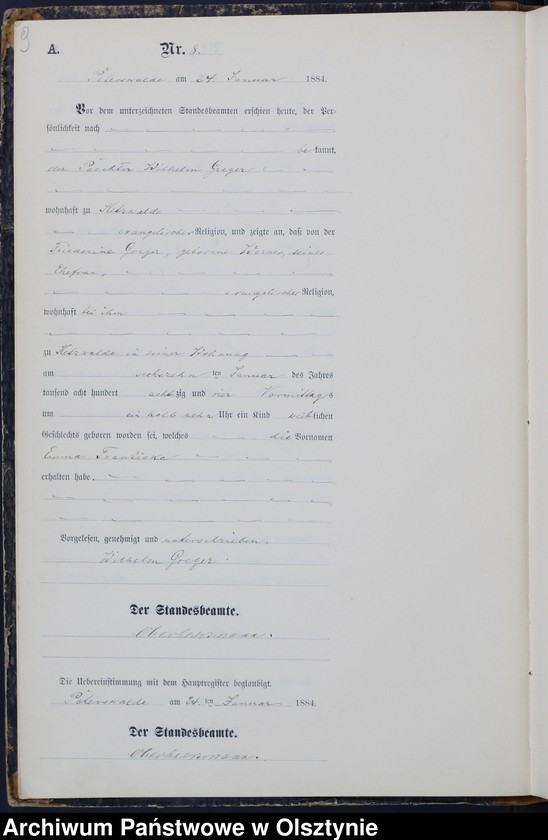 9
A.
Nr. 8.
Peterswalde am 24. Januar 1884.
Vor dem unterzeichneten Standesbeamten erschien heute, der Per-
sönlichkeit nach
be kannt,
der Pächter Wilhelm Goeger
wohnhaft zu
evangelischer Religion, und zeigte an, daß von der
Friederine Goeger, geborene Werner, seiner
Ehefrau,
evangelischer Religion,
wohnhaft bei ihm
zu in seiner Wohnung
am sechszehn ten Januar des Jahres
tausend acht hundert achtzig und vier Vormittags
um ein halb zehn Uhr ein Kind weiblichen
Geschlechts geboren worden sei, welches die Vornamen
Emma Franziska
erhalten habe.
Vorgelesen, genehmigt und unterschrieben.
Wilhelm Goeger.
Der Standesbeamte.
Die Uebereinstimmung mit dem Hauptregister beglaubigt.
Peterswalde am 24. ten Januar 1884.
Der Standesbeamte.
Archiwum Państwowe w Olsztynie